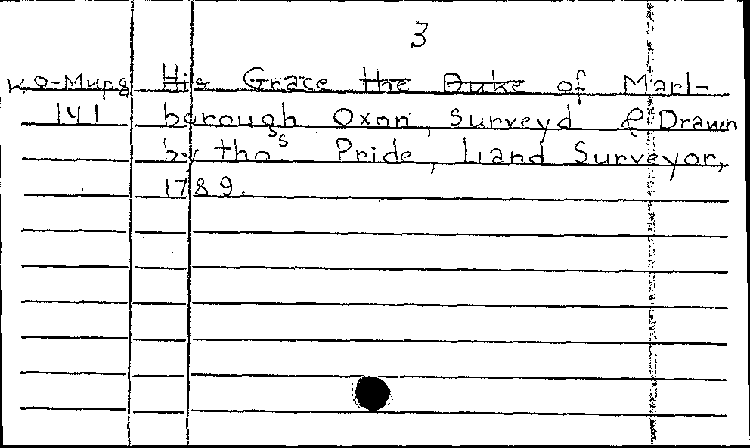 3
K.O-Maps His Grace the Duke of Marl-
141 borough Oxon, Surveyd & Drawn
by thoˢˢ Pride, Land Surveyor,
1789.